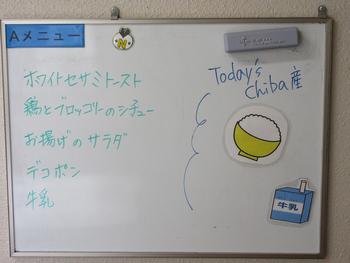 Aメニュー
ホワイトセサミトースト
鶏とブロッコリーのシチュー
お揚げのサラダ
デコポン
牛乳
Today's
Chiba産
牛乳